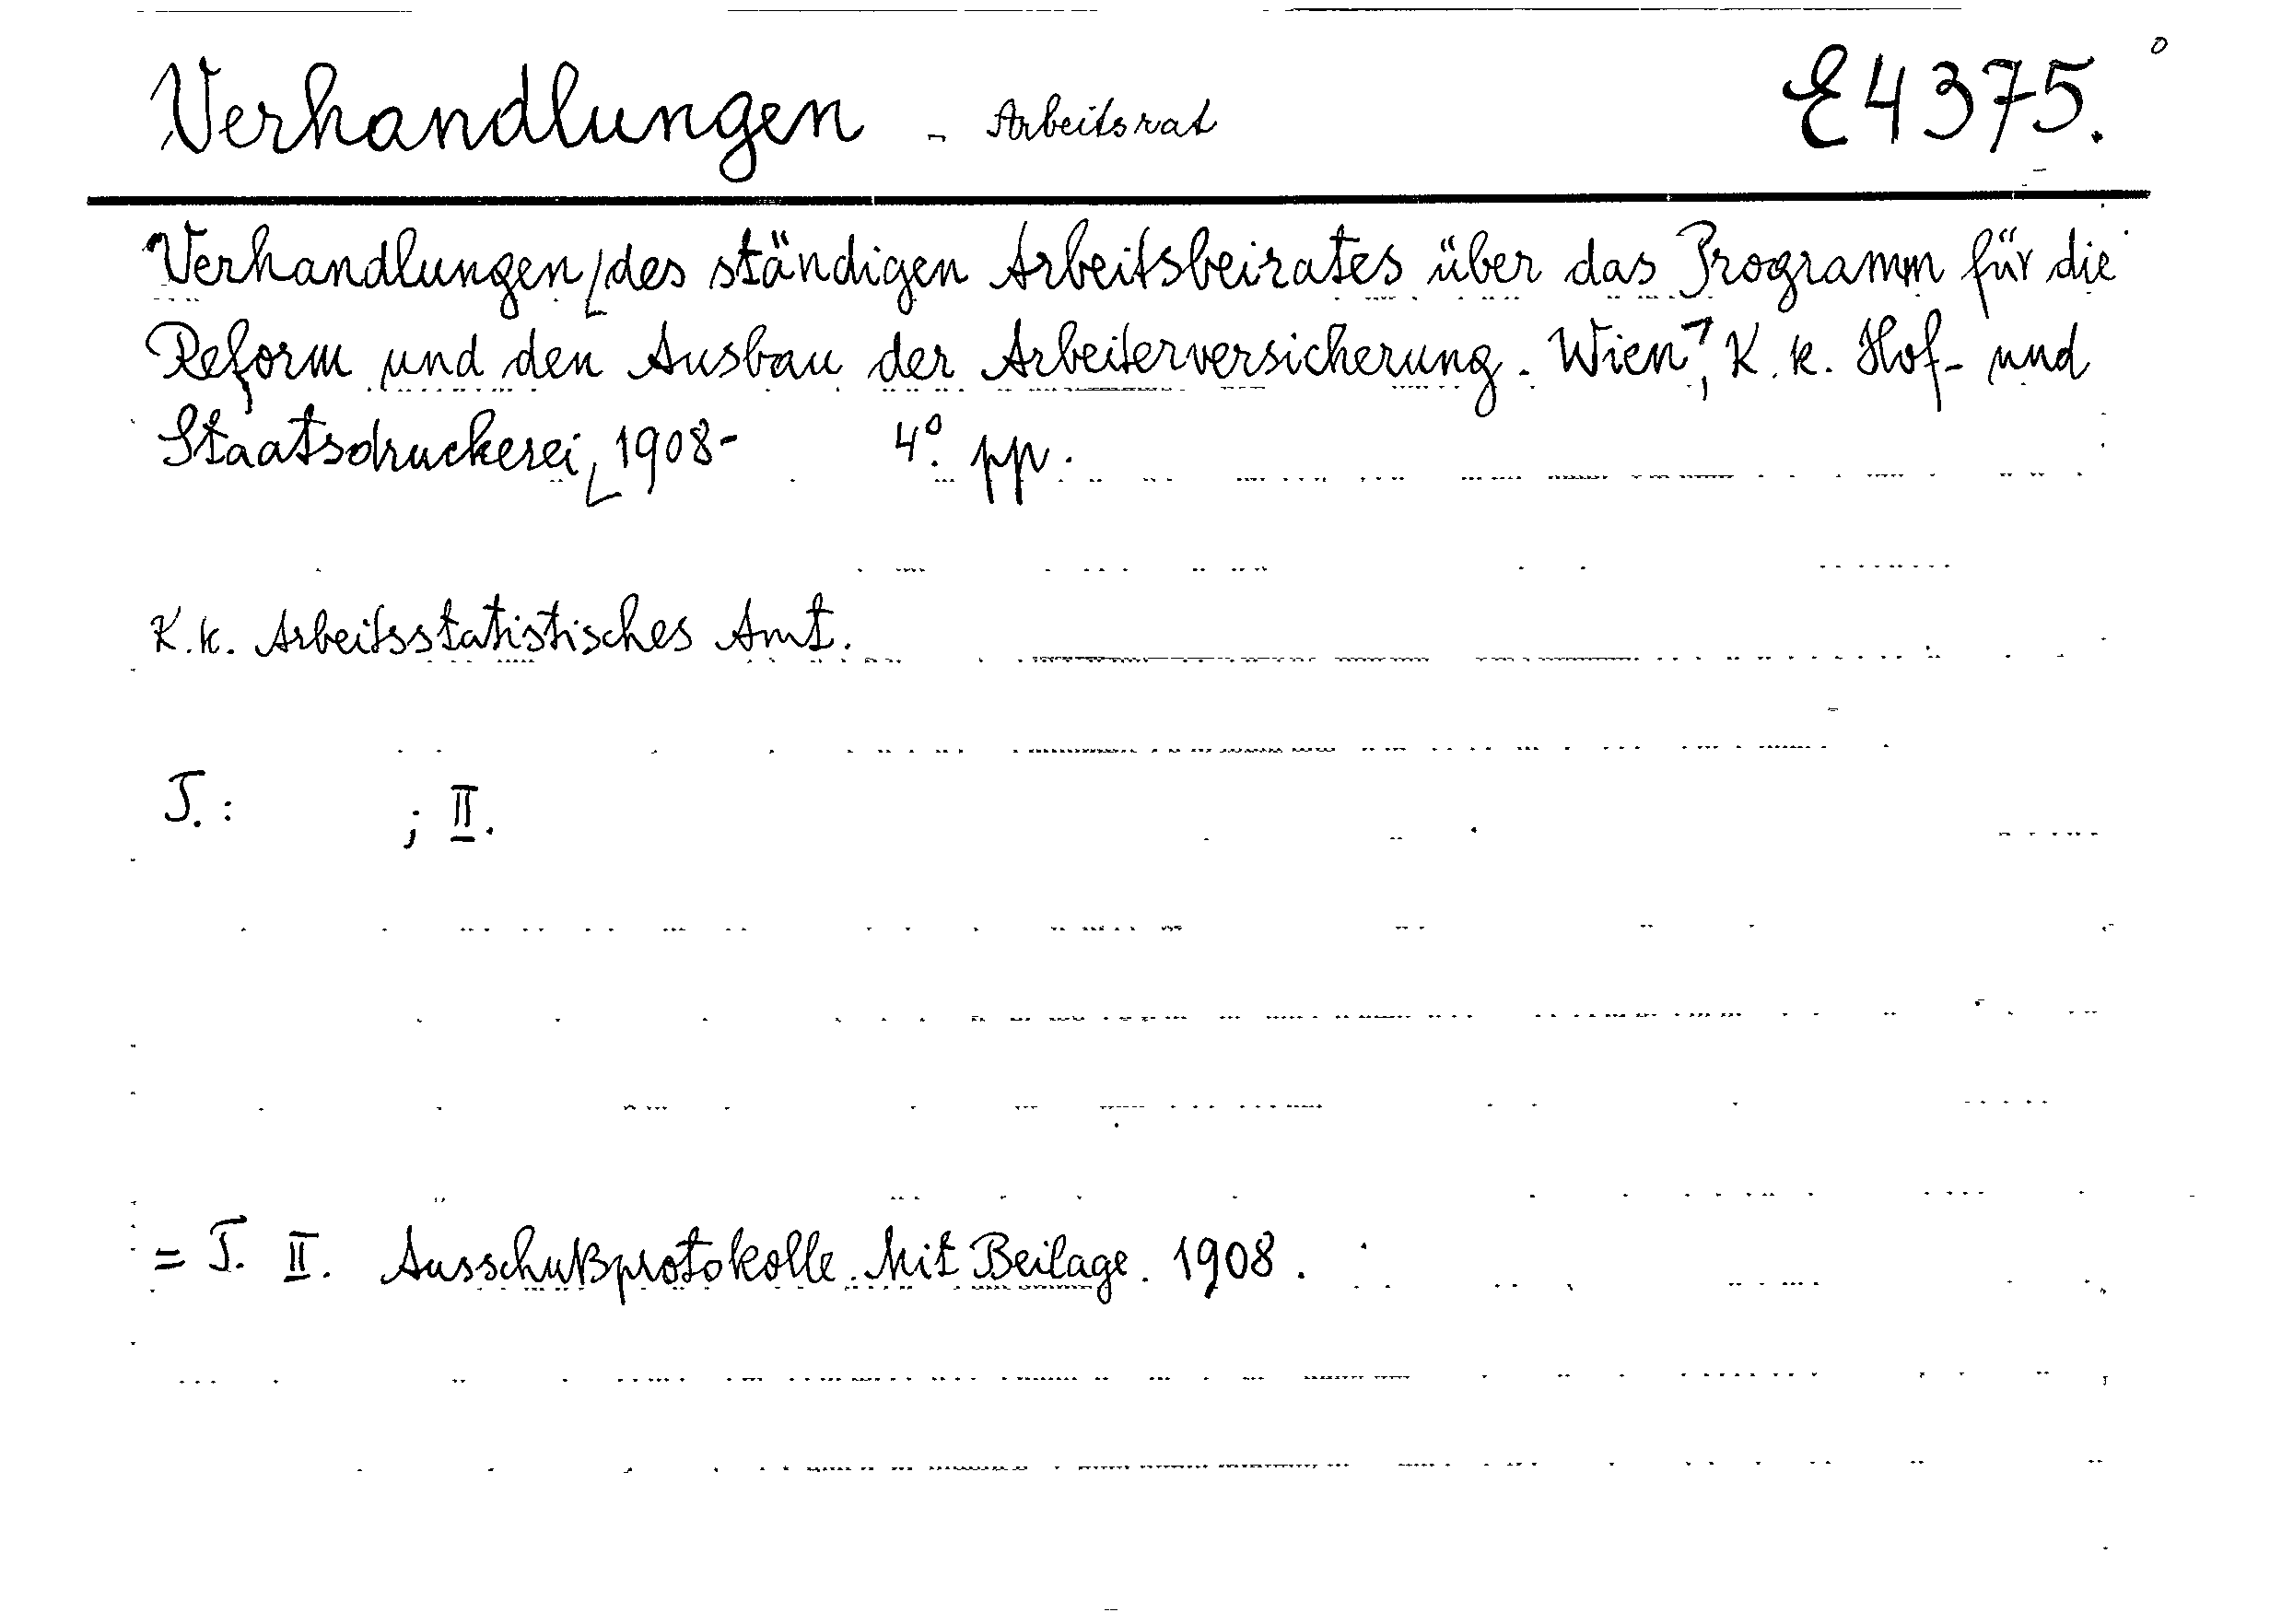 Verhandlungen - Arbeitsrat E4375.
Verhandlungen des ständigen Arbeitsbeirates über das Programm für die
Reform und den Ausbau der Arbeiterversicherung. Wien, K. k. Hof- und
Staatsdruckerei, 1908- 4°. pp.
K.k. Arbeitsstatistisches Amt.
T.: ; II.
= T. II. Ausschußprotokolle. Mit Beilage. 1908.